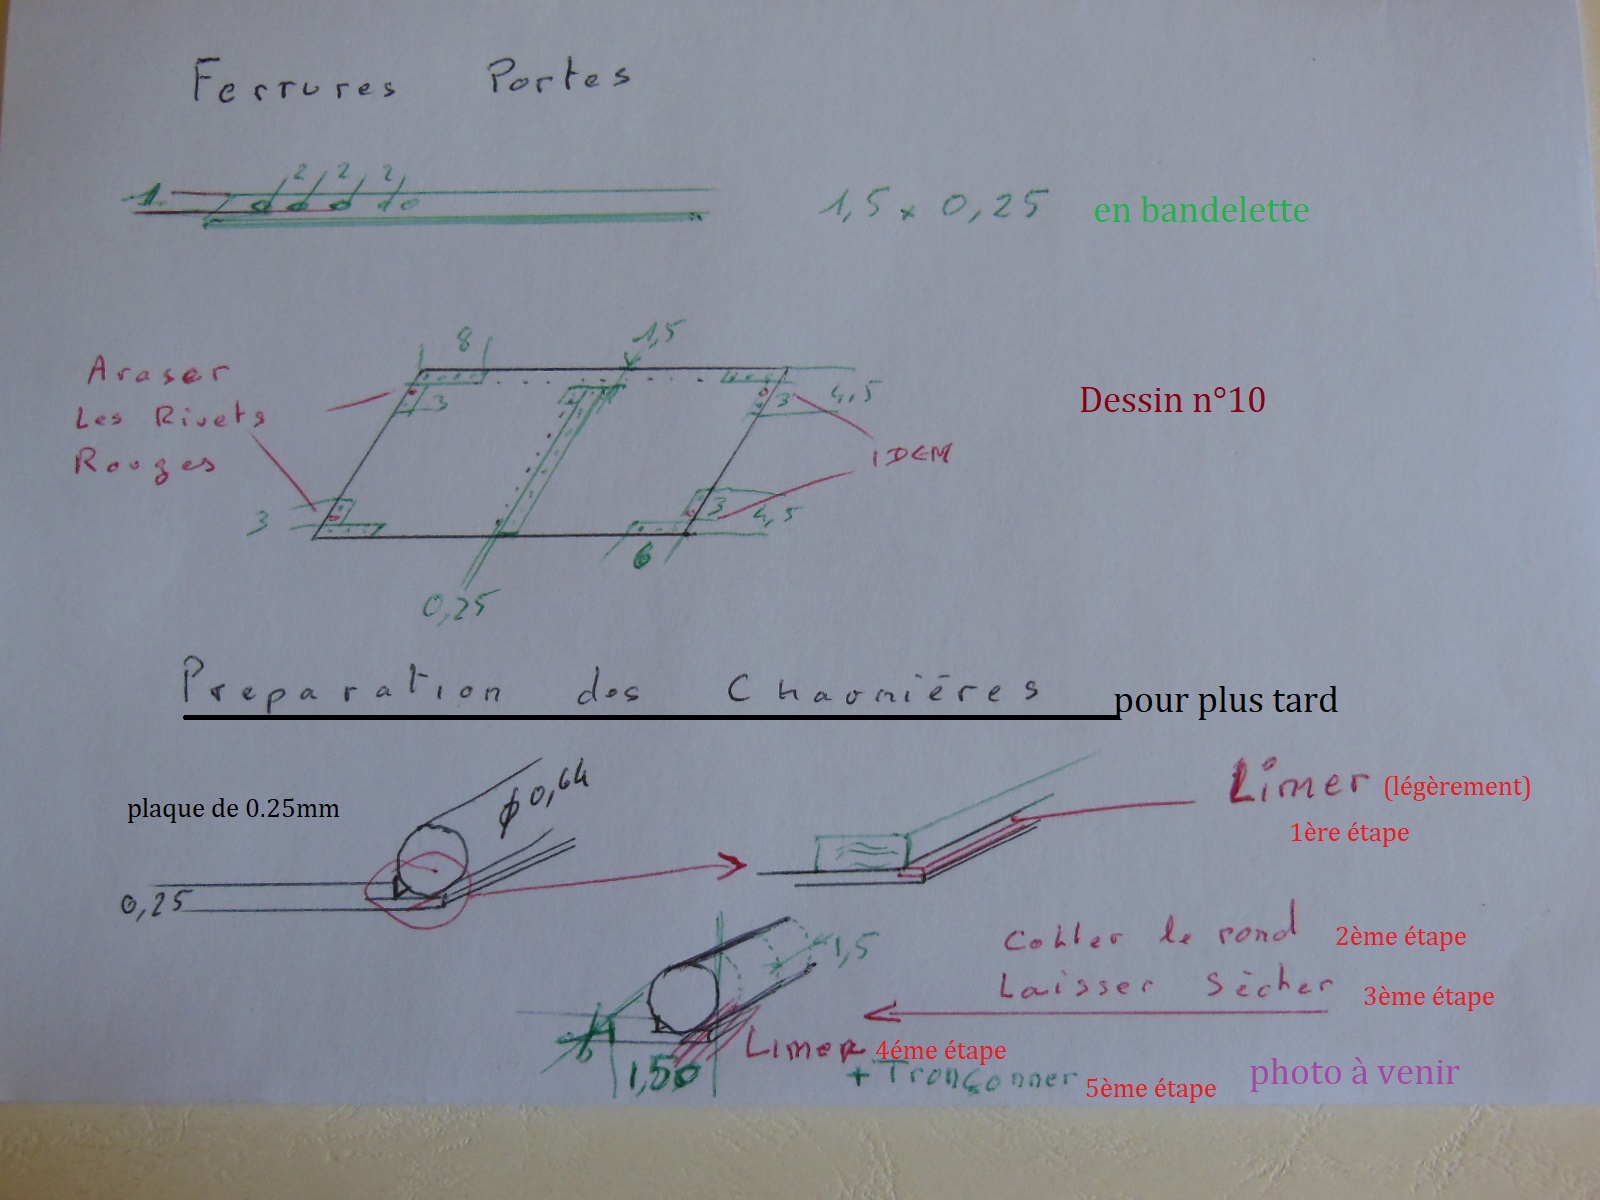 Ferrures Portes
2 2 2
1
1,5 x 0,25 en bandelette
8
1,5
Araser
Les Rivets
Rouges
3
3
4,5
Dessin n°10
IDEM
3
3
4,5
6
0,25
Preparation des Charnières pour plus tard
plaque de 0.25mm
ϕ 0,64
0,25
Limer (légèrement)
1ère étape
Coller le rond 2ème étape
Laisser Sècher 3ème étape
1,5
Limer 4éme étape
1,50
+ Tronçonner 5ème étape
photo à venir